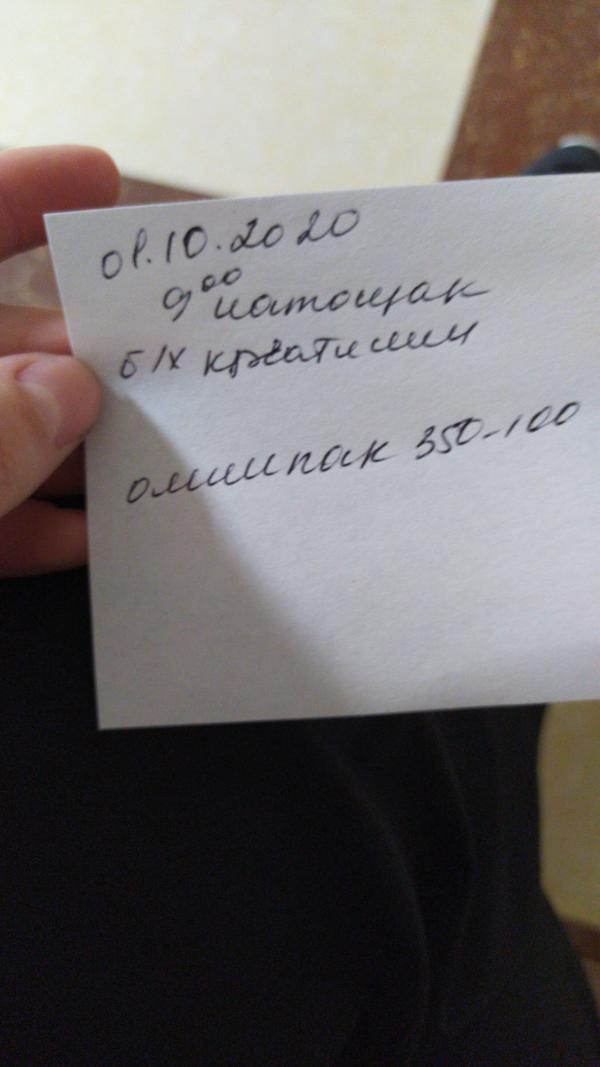 01.10.2020
9⁰⁰ натощак
б/х креатинин
омнипак 350-100